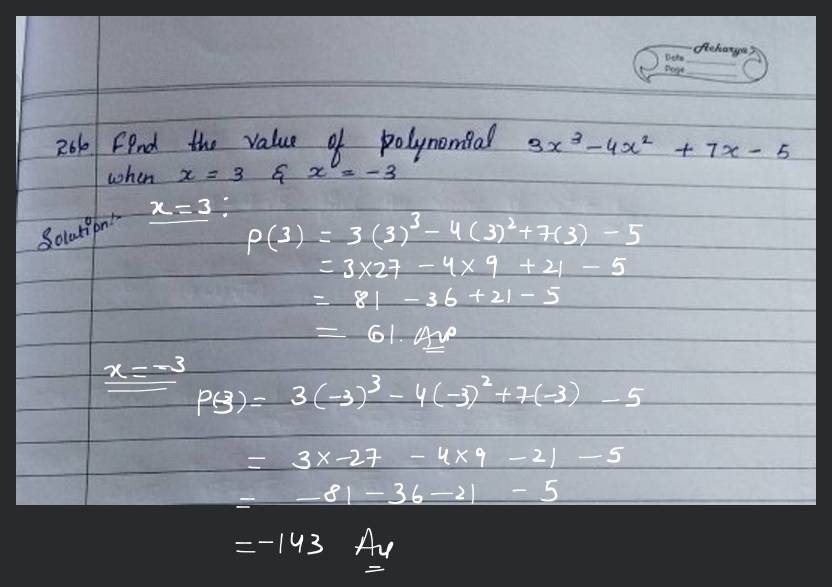 Acharya
Date
Page
266 Find the value of polynomial 3x³ - 4x² + 7x - 5
when x = 3 & x = -3
Solution:-
x = 3 :
P(3) = 3(3)³ - 4(3)² + 7(3) - 5
= 3×27 - 4×9 + 21 - 5
= 81 - 36 + 21 - 5
= 61. Ans
x = -3
P(-3) = 3(-3)³ - 4(-3)² + 7(-3) - 5
= 3×-27 - 4×9 - 21 - 5
= -81 - 36 - 21 - 5
= -143 Ans